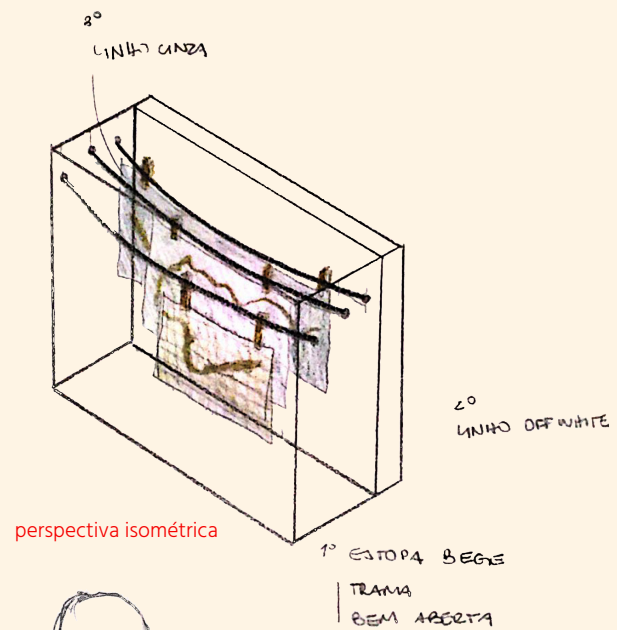 3º
LINHO CINZA
2º
LINHO OFF WHITE
perspectiva isométrica
1º ESTOPA BEGE
TRAMA
BEM ABERTA